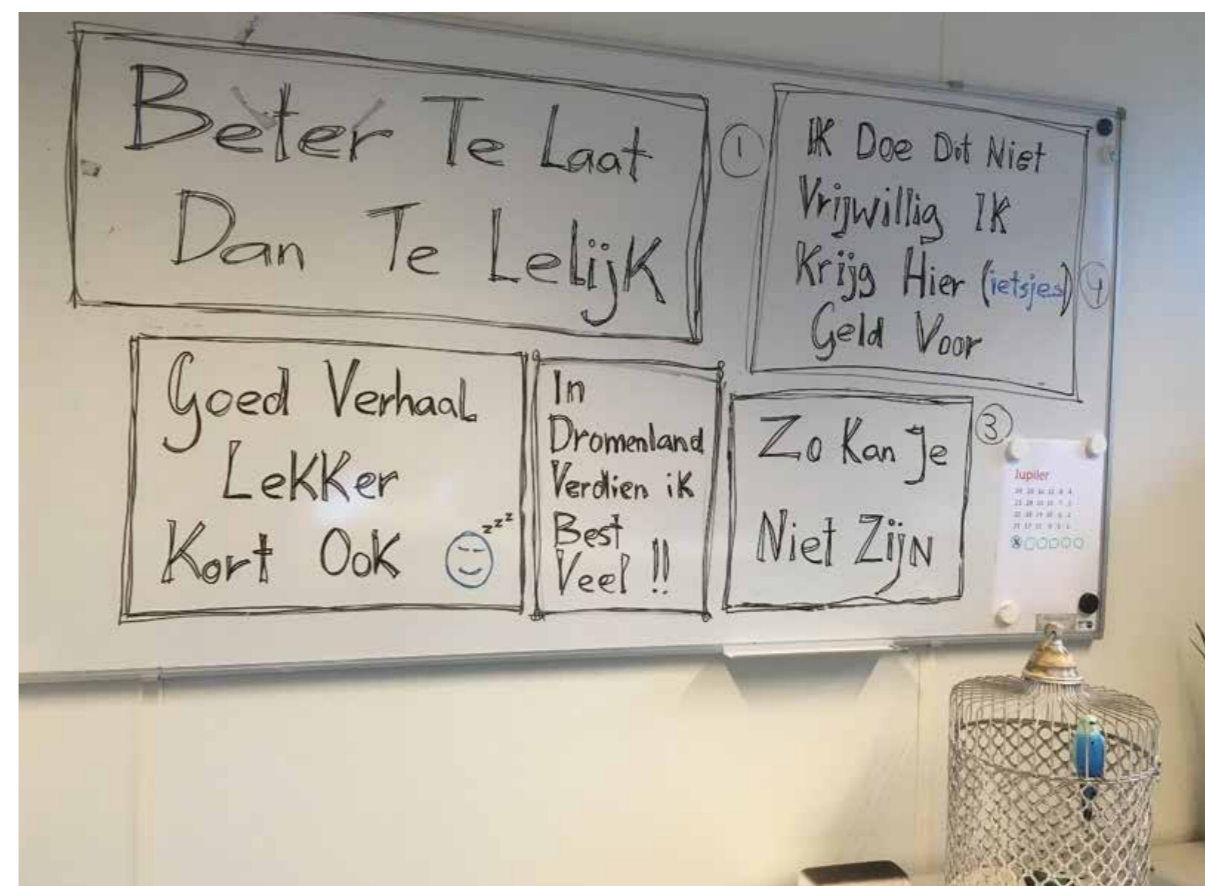 Beter Te Laat
Dan Te Lelijk
1
IK Doe Dit Niet
Vrijwillig IK
Krijg Hier (ietsjes)
Geld Voor
4
Goed Verhaal
Lekker
Kort Ook
zzz
In
Dromenland
Verdien ik
Best
Veel !!
Zo Kan Je
Niet Zijn
3
Jupiler